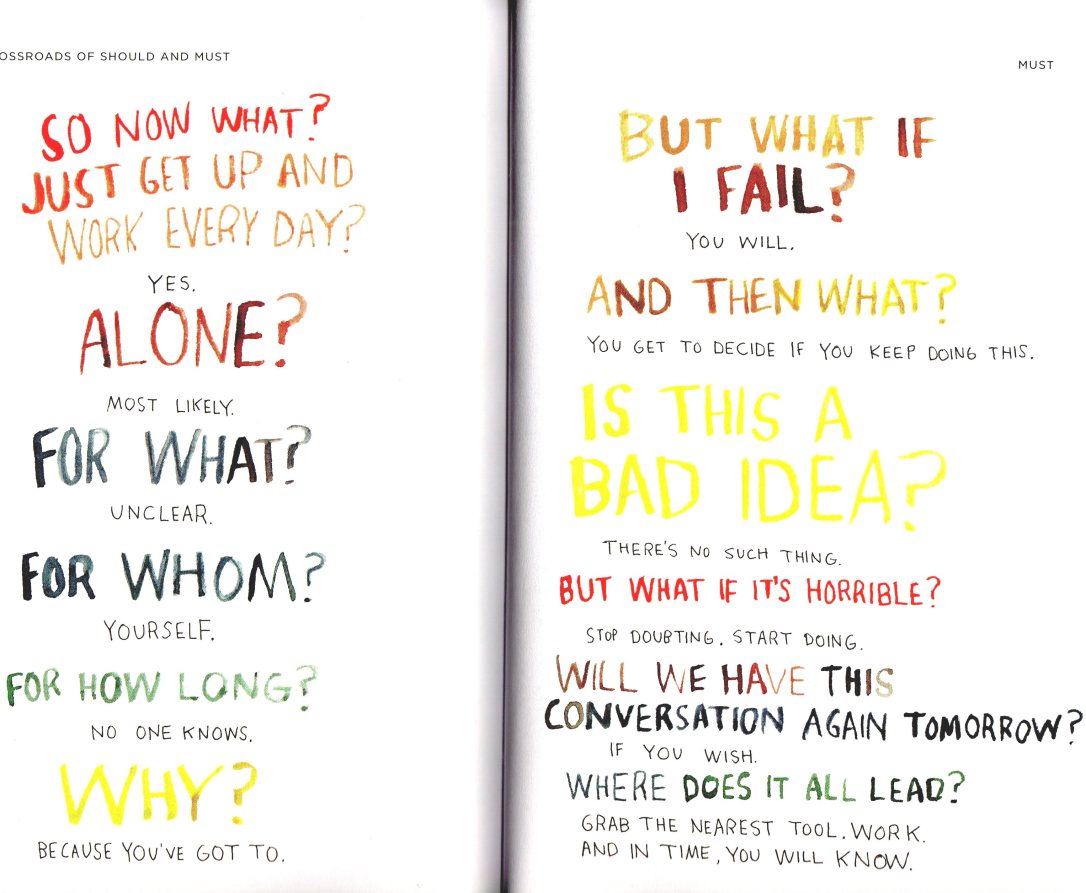 OSSROADS OF SHOULD AND MUST
SO NOW WHAT?
JUST GET UP AND
WORK EVERY DAY?
YES.
ALONE?
MOST LIKELY.
FOR WHAT?
UNCLEAR.
FOR WHOM?
YOURSELF.
FOR HOW LONG?
NO ONE KNOWS.
WHY?
BECAUSE YOU'VE GOT TO.
MUST
BUT WHAT IF
I FAIL?
YOU WILL.
AND THEN WHAT?
YOU GET TO DECIDE IF YOU KEEP DOING THIS.
IS THIS A
BAD IDEA?
THERE'S NO SUCH THING.
BUT WHAT IF IT'S HORRIBLE?
STOP DOUBTING. START DOING.
WILL WE HAVE THIS
CONVERSATION AGAIN TOMORROW?
IF YOU WISH.
WHERE DOES IT ALL LEAD?
GRAB THE NEAREST TOOL. WORK.
AND IN TIME, YOU WILL KNOW.